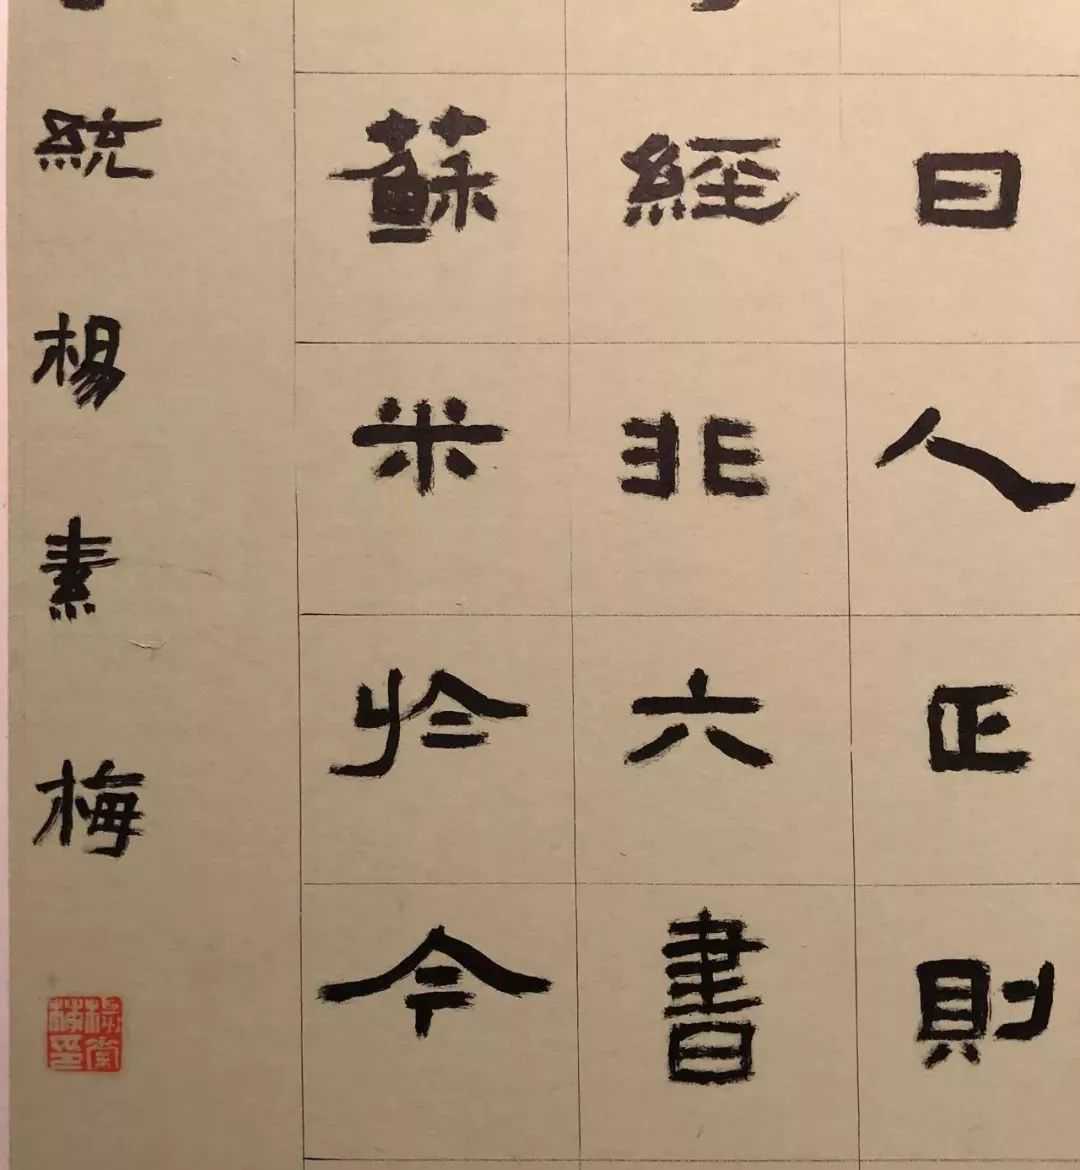 曰人正則
經非六書
蘇米於今
統楊素梅
楊素梅印